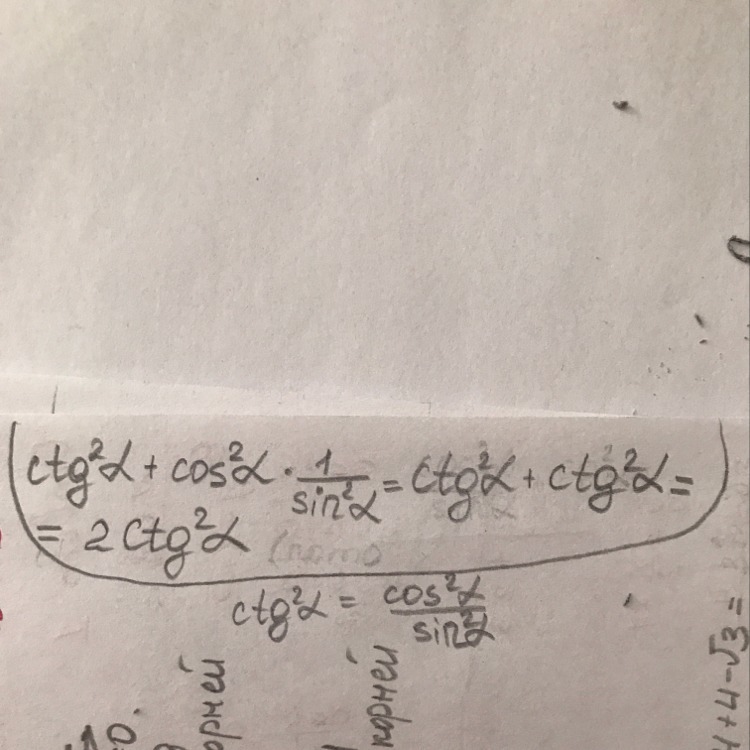 ctg²α + cos²α · 1/sin²α = ctg²α + ctg²α =
= 2ctg²α
ctg²α = cos²α/sin²α
корней
4+4-√3 =